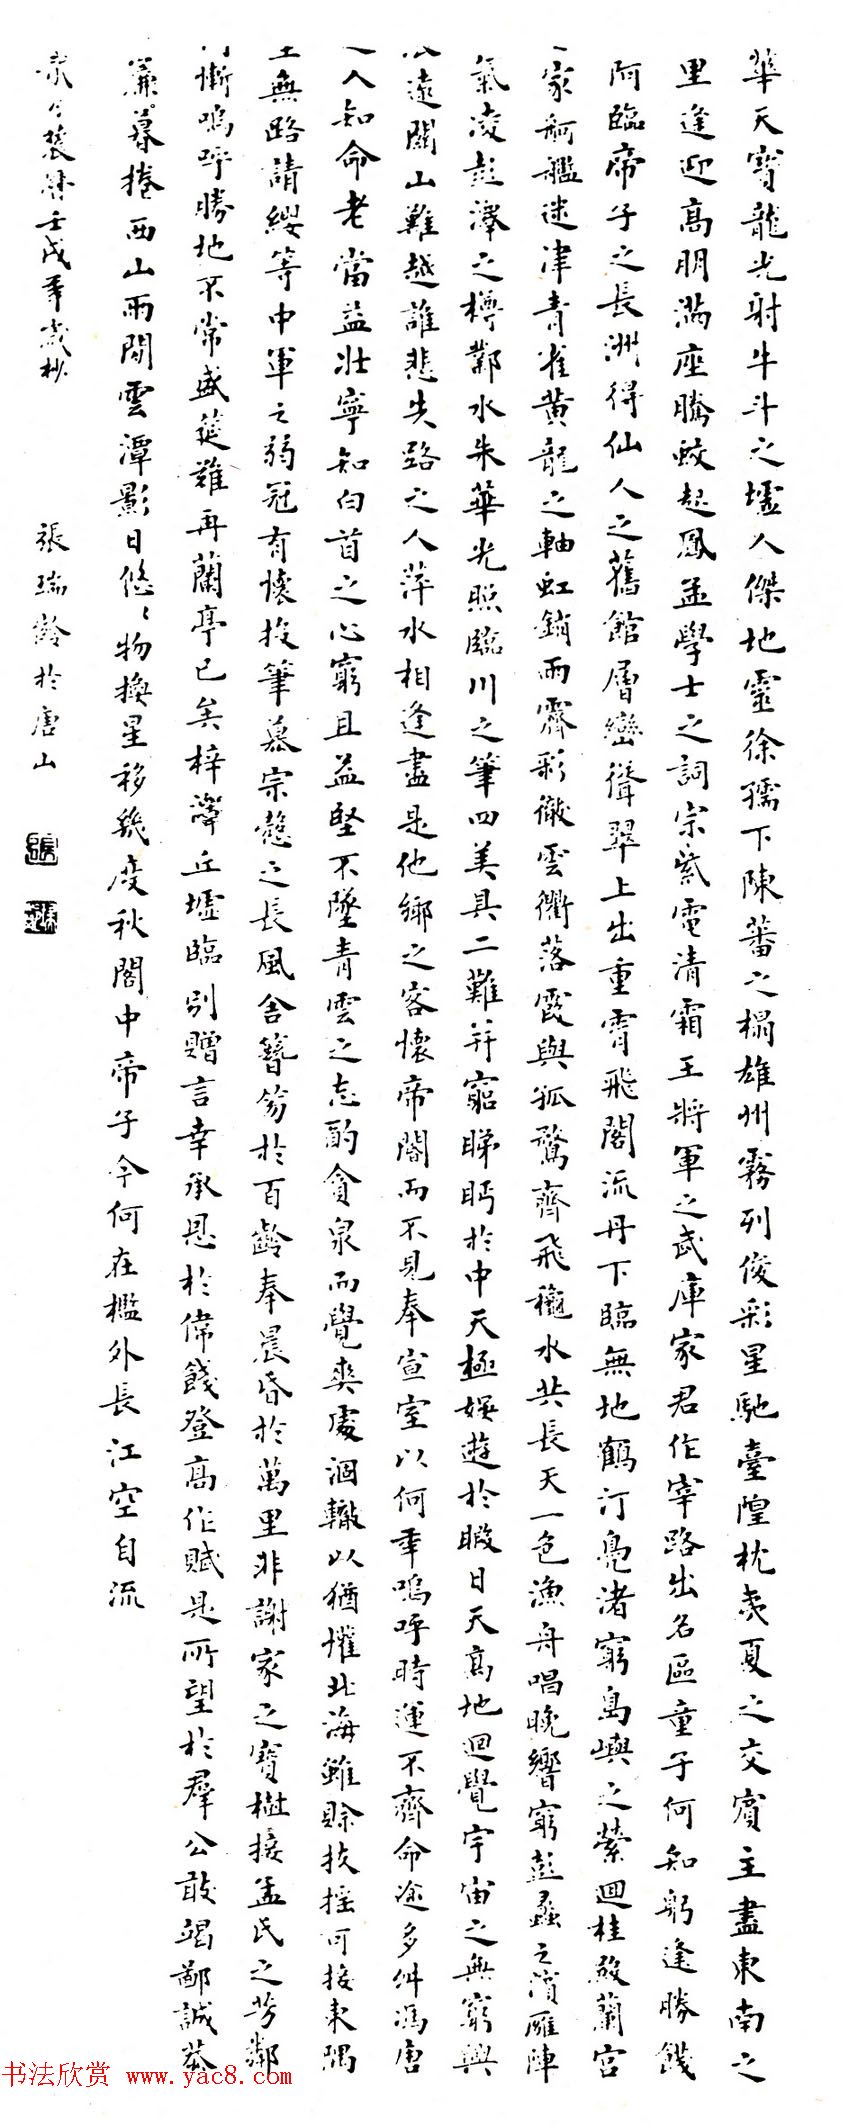 華天寶龍光射牛斗之墟人傑地靈徐孺下陳蕃之榻雄州霧列俊彩星馳臺隍枕夷夏之交賓主盡東南之
里逢迎高朋滿座騰蛟起鳳孟學士之詞宗紫電清霜王將軍之武庫家君作宰路出名區童子何知躬逢勝餞
阿臨帝子之長洲得仙人之舊館層巒聳翠上出重霄飛閣流丹下臨無地鶴汀鳧渚窮島嶼之縈迴桂殿蘭宮
家舸艦迷津青雀黃龍之軸虹銷雨霽彩徹雲衢落霞與孤鶩齊飛秋水共長天一色漁舟唱晚響窮彭蠡之濱雁陣
氣凌彭澤之樽鄴水朱華光照臨川之筆四美具二難并窮睇眄於中天極娛遊於暇日天高地迴覺宇宙之無窮興
遠關山難越誰悲失路之人萍水相逢盡是他鄉之客懷帝閽而不見奉宣室以何年嗚呼時運不齊命途多舛馮唐
人知命老當益壯寧知白首之心窮且益堅不墜青雲之志酌貪泉而覺爽處涸轍以猶懽北海雖賒扶搖可接東隅
無路請纓等中軍之弱冠有懷投筆慕宗慤之長風舍簪笏於百齡奉晨昏於萬里非謝家之寶樹接孟氏之芳鄰
慚嗚呼勝地不常盛筵難再蘭亭已矣梓澤丘墟臨別贈言幸承恩於偉餞登高作賦是所望於羣公敢竭鄙誠恭
簾暮捲西山雨閒雲潭影日悠〻物換星移幾度秋閣中帝子今何在檻外長江空自流
壬戌年歲杪 張瑞齡於唐山
书法欣赏 www.yac8.com